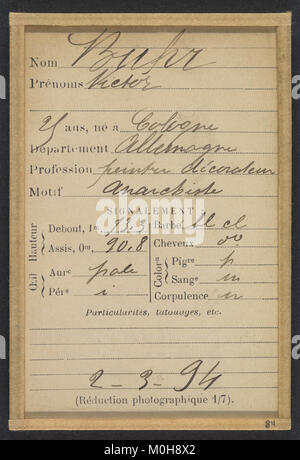 Nom Buhr
Prénoms Victor
25 ans, né à Cologne
Département Allemagne
Profession peintre décorateur
Motif Anarchiste
SIGNALEMENT
Hauteur
Debout, 1m
Assis, 0m 90.8
Œil
Aure pale
Pére i
Barbe bl cl
Cheveux
Colorn
Pigre p
Sange m
Corpulence m
Particularités, tatouages, etc.
2-3-94
(Réduction photographique 1/7).
84
alamy
Image ID: M0H8X2
www.alamy.com